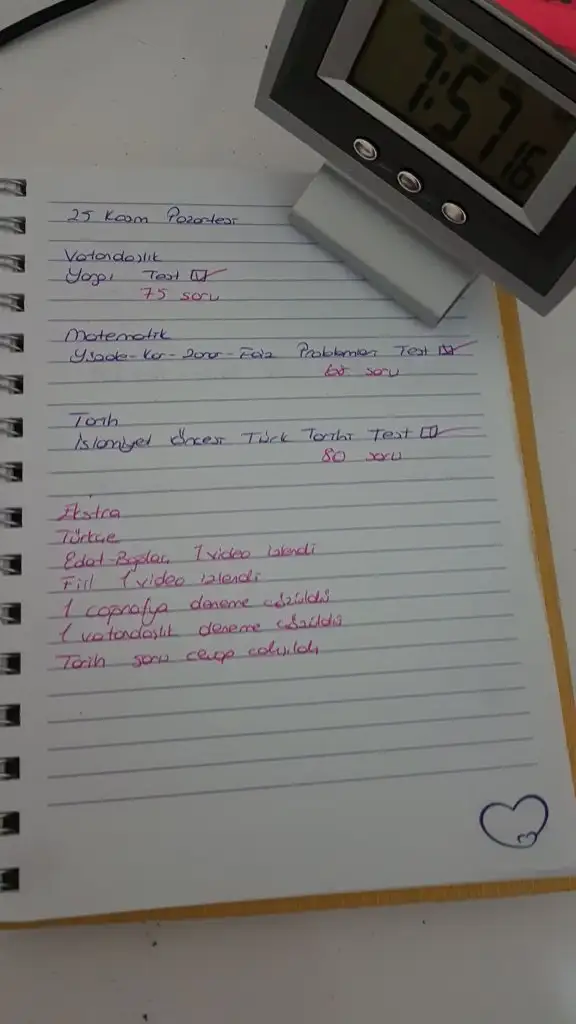 7:57 16
25 Kasım Pazartesi
Vatandaşlık
Yargı Test
75 soru
Matematik
Yüzde-Kar-Zarar-Faiz Problemleri Test
soru
Tarih
İslamiyet Öncesi Türk Tarihi Test
80 soru
Ekstra
Türkçe
Edat-Bağlaç 1 video izlendi
Fiil 1 video izlendi
1 coğrafya deneme çözüldü
1 vatandaşlık deneme çözüldü
Tarih soru cevap çalışıldı